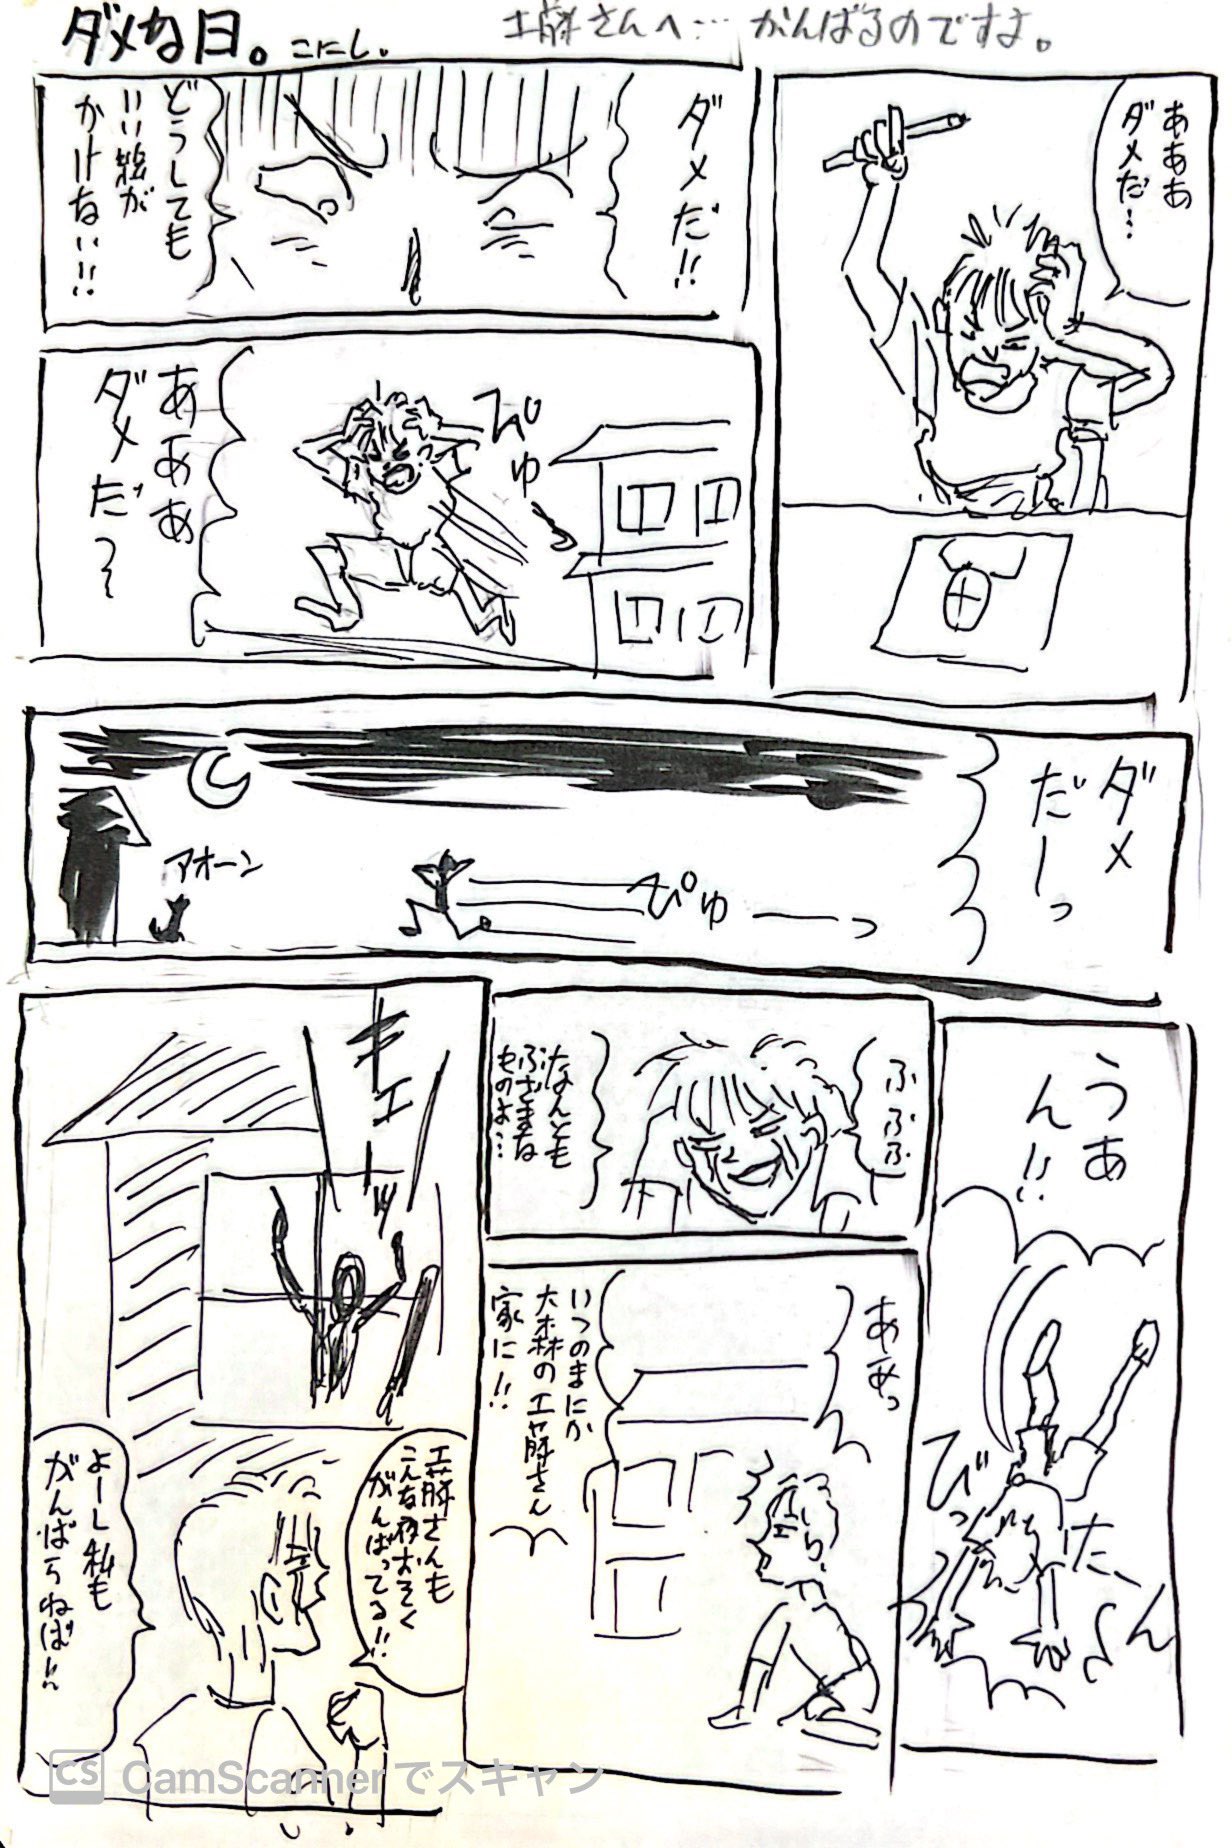 ダメな日。こにし。
工藤さんへ…がんばるのですよ。
あああ
ダメだ…
ダメだ!!
どうしても
いい絵が
かけない!!
びゅーっ
あああ
ダメだ〜
ダメ
だーっ
ぴゅーーっ
アオーン
うあ
ん!!
びったーん
ふふふ
なんとも
ぶざまな
ものよ…
ああっ
いつのまにか
大森の工藤さん
家に!!
キエーッ
工藤さんも
こんな夜おそく
がんばってる!!
よーし私も
がんばらねば!!
CS CamScannerでスキャン